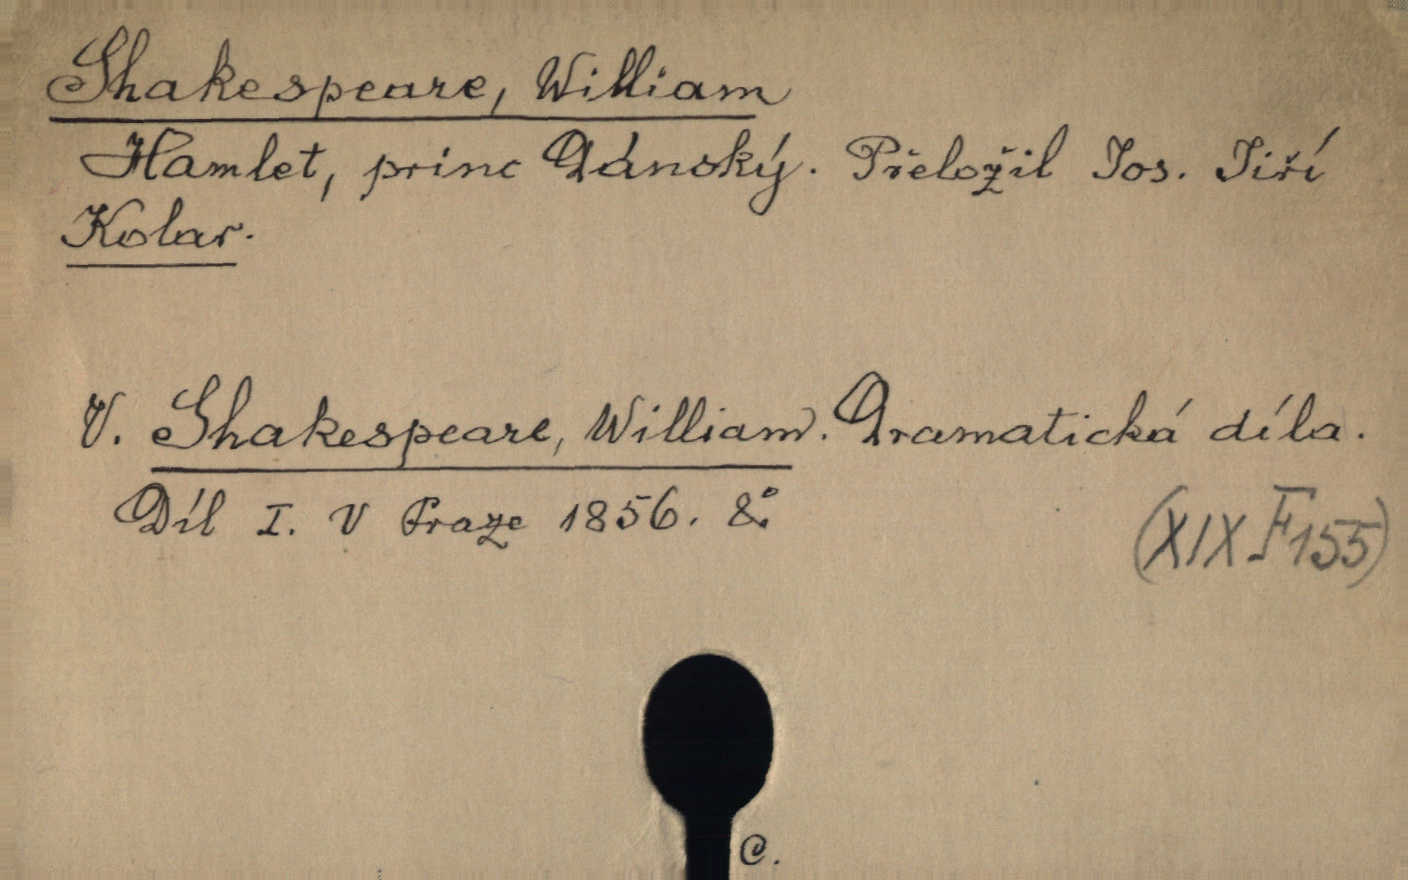 Shakespeare, William
Hamlet, princ Dánský. Přeložil Jos. Jiří
Kolar.
V. Shakespeare, William. Dramatická díla.
Díl I. V Praze 1856. 8°.
(XIX F 155)
C.